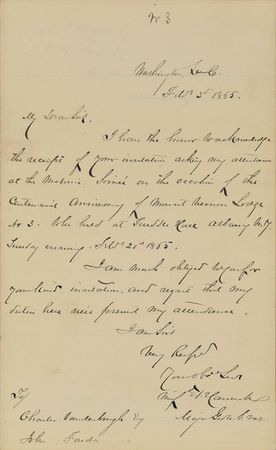 W S
Washington, D.C.
Feb. 3d 1865.
My Dear Sir.
I have the honor to acknowledge
the receipt of your invitation asking my attendance
at the Masonic Soireé on the occasion of the
Centennial Anniversary of Mount Vernon Lodge
No 3. to be held at Tweddle Hall Albany N.Y.
Tuesday evening Feb. 21st 1865.
I am much obliged to you for
your kind invitation, and regret that my
duties here will prevent my attendance.
I am Sir
Very Respf
Your Obt Servt
Winf. S. Hancock
Major Genl U.S. Vols.
To
Charles Vanderburgh Esq
John